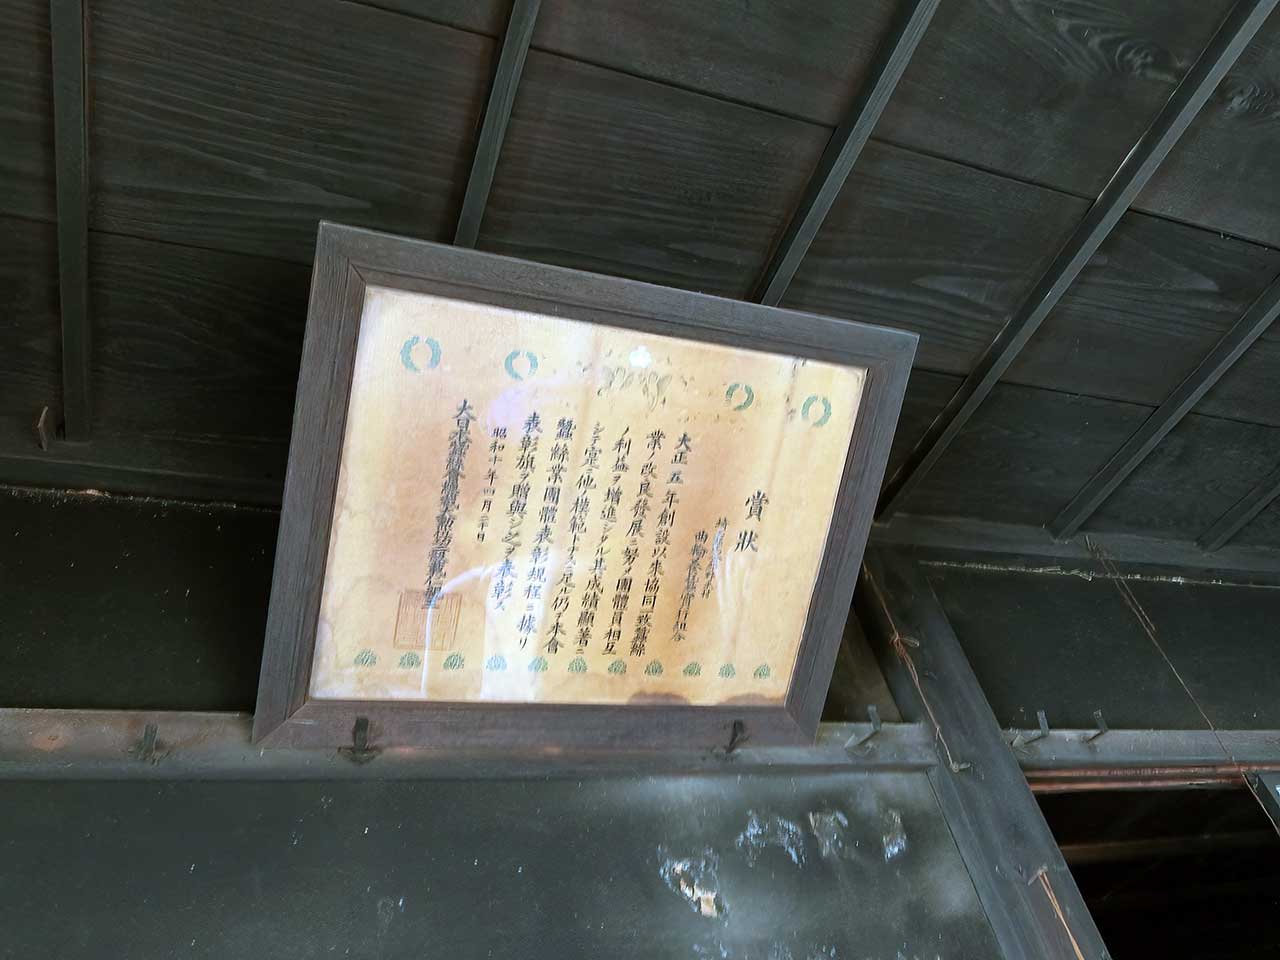 賞狀
大正五年創設以來協同一致蠶絲
業ノ改良發展ニ努メ團體員相互
ノ利益ヲ增進シタル其成績顯著ニ
シテ寔ニ他ノ模範トナスニ足ル仍テ本會
蠶絲業團體表彰規程ニ據リ
表彰旗ヲ贈與シ之ヲ表彰ス
昭和十年四月二十日